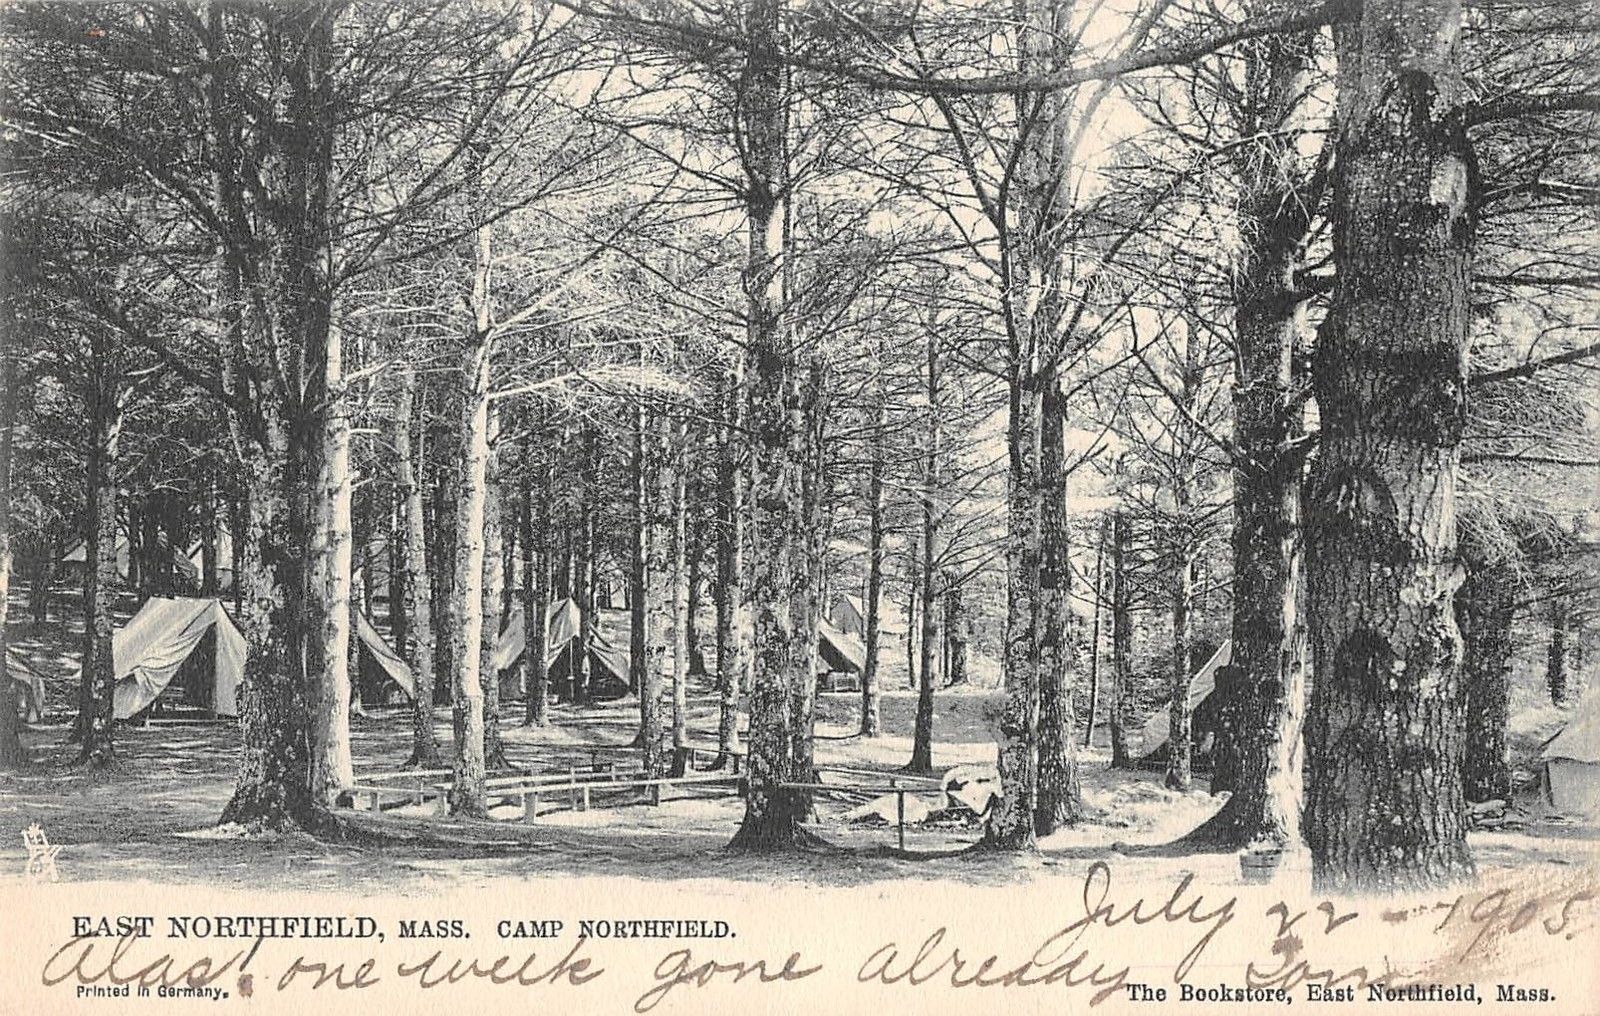 July 22 - 1905.
EAST NORTHFIELD, MASS. CAMP NORTHFIELD.
Alas! one week gone already
Printed in Germany.
The Bookstore, East Northfield, Mass.